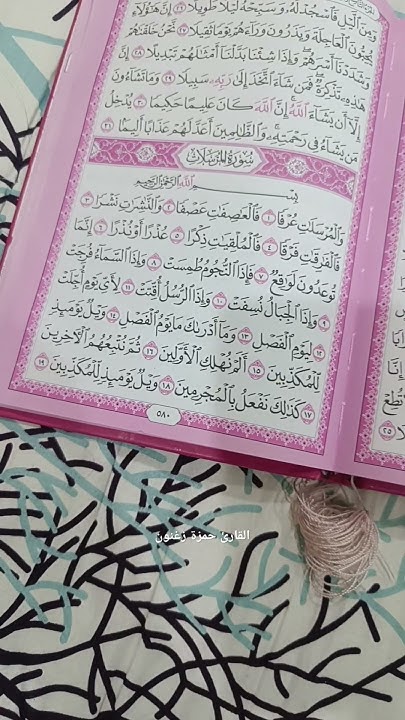 وَمِنَ ٱلَّيْلِ فَٱسْجُدْ لَهُۥ وَسَبِّحْهُ لَيْلًا طَوِيلًا ٢٦ إِنَّ هَٰٓؤُلَآءِ
يُحِبُّونَ ٱلْعَاجِلَةَ وَيَذَرُونَ وَرَآءَهُمْ يَوْمًا ثَقِيلًا ٢٧ نَّحْنُ خَلَقْنَٰهُمْ
وَشَدَدْنَآ أَسْرَهُمْ وَإِذَا شِئْنَا بَدَّلْنَآ أَمْثَٰلَهُمْ تَبْدِيلًا ٢٨ إِنَّ
هَٰذِهِۦ تَذْكِرَةٌ فَمَن شَآءَ ٱتَّخَذَ إِلَىٰ رَبِّهِۦ سَبِيلًا ٢٩ وَمَا تَشَآءُونَ
إِلَّآ أَن يَشَآءَ ٱللَّهُ إِنَّ ٱللَّهَ كَانَ عَلِيمًا حَكِيمًا ٣٠ يُدْخِلُ
مَن يَشَآءُ فِى رَحْمَتِهِۦ وَٱلظَّٰلِمِينَ أَعَدَّ لَهُمْ عَذَابًا أَلِيمًۢا ٣١
سُورَةُ المُرْسَلَاتِ
بِسْمِ ٱللَّهِ ٱلرَّحْمَٰنِ ٱلرَّحِيمِ
وَٱلْمُرْسَلَٰتِ عُرْفًا ١ فَٱلْعَٰصِفَٰتِ عَصْفًا ٢ وَٱلنَّٰشِرَٰتِ نَشْرًا ٣
فَٱلْفَٰرِقَٰتِ فَرْقًا ٤ فَٱلْمُلْقِيَٰتِ ذِكْرًا ٥ عُذْرًا أَوْ نُذْرًا ٦ إِنَّمَا
تُوعَدُونَ لَوَٰقِعٌ ٧ فَإِذَا ٱلنُّجُومُ طُمِسَتْ ٨ وَإِذَا ٱلسَّمَآءُ فُرِجَتْ
٩ وَإِذَا ٱلْجِبَالُ نُسِفَتْ ١٠ وَإِذَا ٱلرُّسُلُ أُقِّتَتْ ١١ لِأَىِّ يَوْمٍ أُجِّلَتْ
١٢ لِيَوْمِ ٱلْفَصْلِ ١٣ وَمَآ أَدْرَىٰكَ مَا يَوْمُ ٱلْفَصْلِ ١٤ وَيْلٌ يَوْمَئِذٍ
لِّلْمُكَذِّبِينَ ١٥ أَلَمْ نُهْلِكِ ٱلْأَوَّلِينَ ١٦ ثُمَّ نُتْبِعُهُمُ ٱلْءَاخِرِينَ
١٧ كَذَٰلِكَ نَفْعَلُ بِٱلْمُجْرِمِينَ ١٨ وَيْلٌ يَوْمَئِذٍ لِّلْمُكَذِّبِينَ ١٩
٥٨٠
القارئ حمزة زغنون